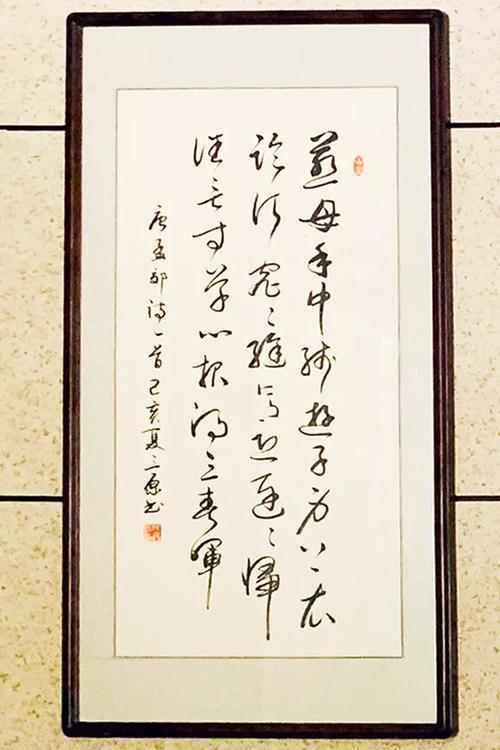 慈母手中線遊子身上衣
臨行密々縫意恐遲々歸
誰言寸草心報得三春暉
唐孟郊詩一首己亥夏三原書